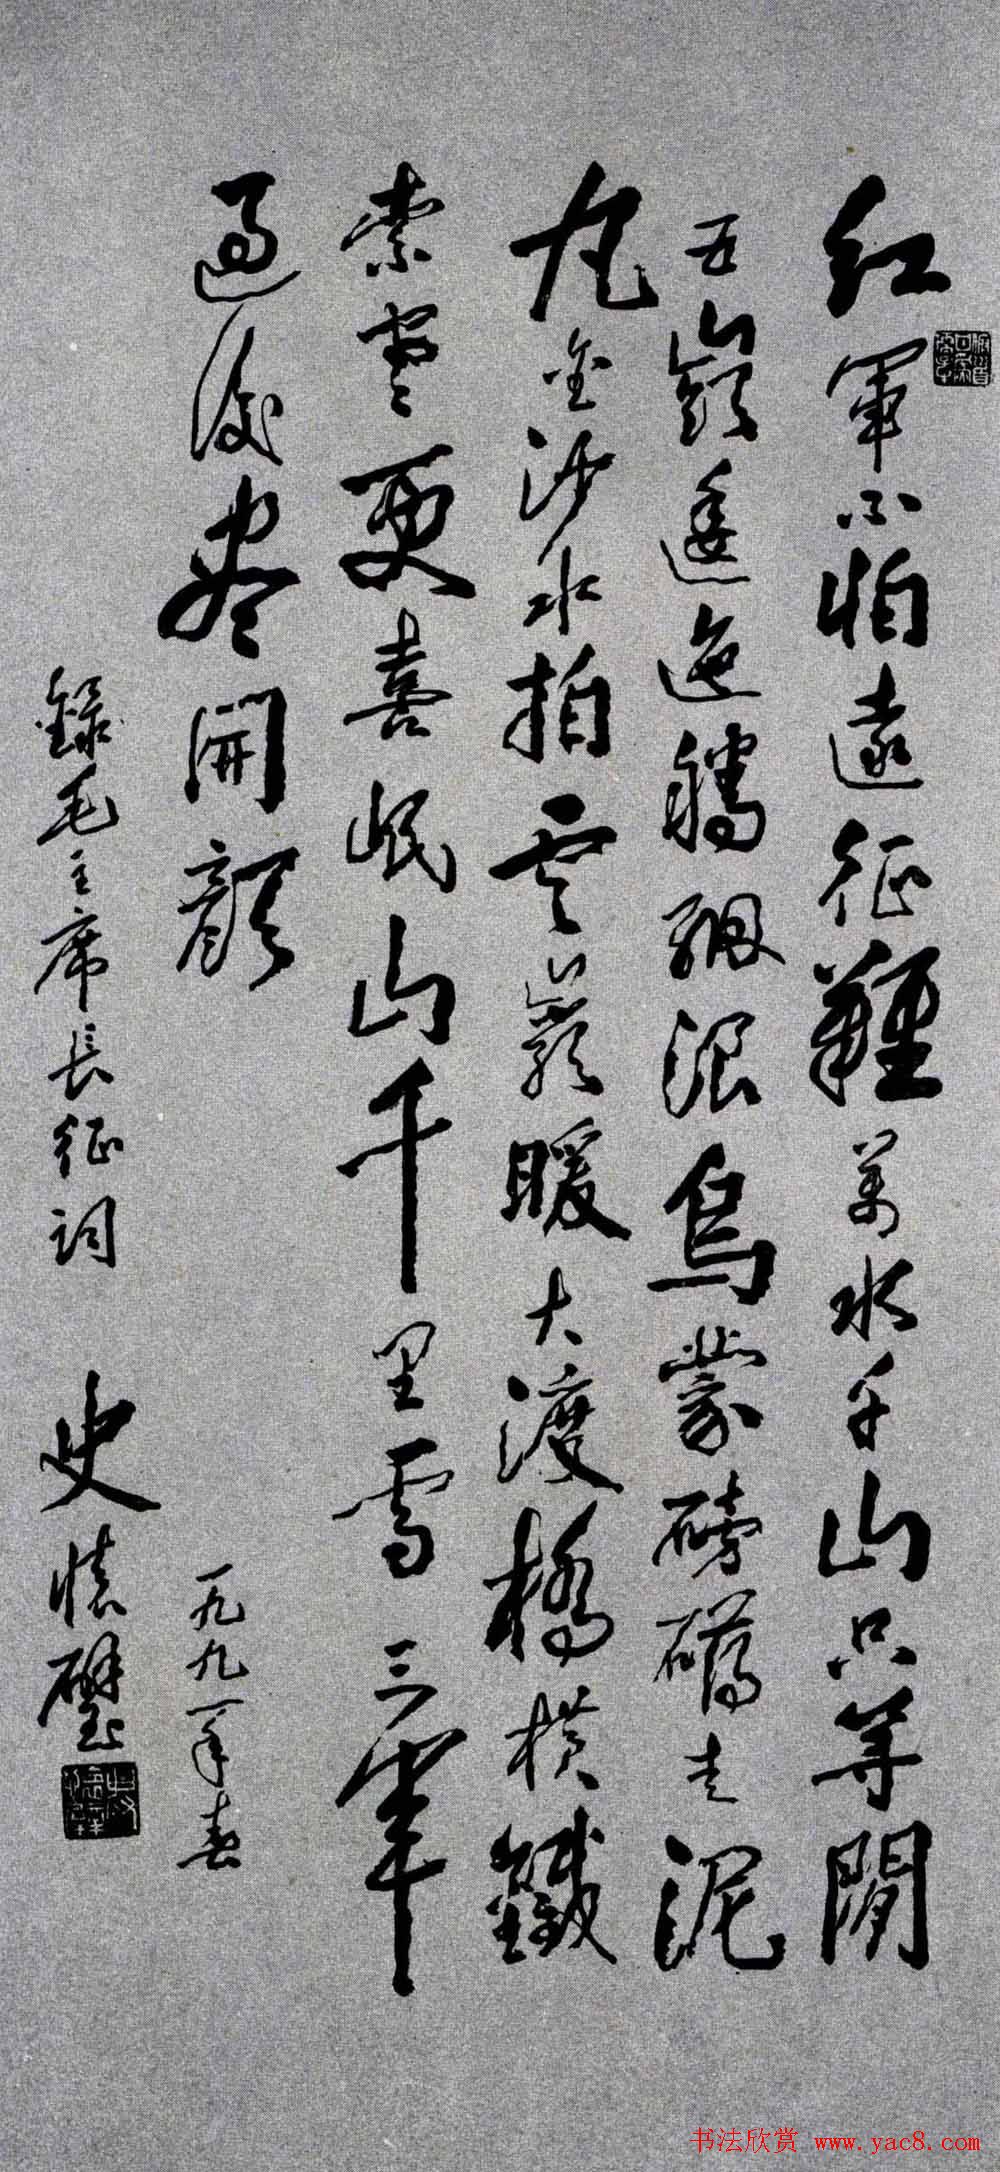 紅軍不怕遠征難萬水千山只等閒
五嶺逶迤騰細浪烏蒙磅礴走泥
丸金沙水拍雲巖暖大渡橋橫鐵
索寒更喜岷山千里雪三軍
過後盡開顏
一九九一年春
錄毛主席長征詞 史懷璧
书法欣赏 www.yac8.com